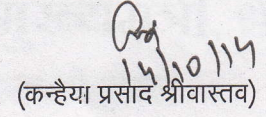 14/10/14
(कन्हैया प्रसाद श्रीवास्तव)